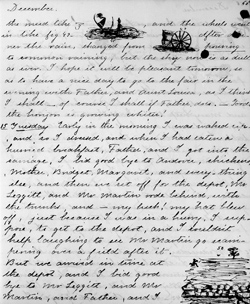 December.
the mud like , and the wheels went
in like fig &c. After
us the rain, changed from pouring
to common raining, but the sky now is as dull
as ever. I hope it will be pleasant tomorrow, so
as to have a nice day to go to the fair in the
evening with Father, and Aunt Louisa, as I think
I shall — of course I shall if Father, does.
the horizon is growing whiter!
Tuesday Early in the morning I was waked up,
and so I dressed, and when I had eaten a
hurried breakfast, Father, and I got into the
carriage, I bid good bye to Andover, chickens,
Mother, Bridget, Margaret, and every thing
else, and then we set off for the depot, Mr
Leggitt, and Mr Martin rode behind with
the trunks, and in my rush! my hat blew
off, just because I was in a hurry, I sup-
pose, to get to the depot, and I couldn't
help laughing to see Mr Martin go scam-
pering over a field after it.
But we arrived in time at
the depot, and I bid good
bye to Mr Leggitt, and Mr
Martin, and Father, and I